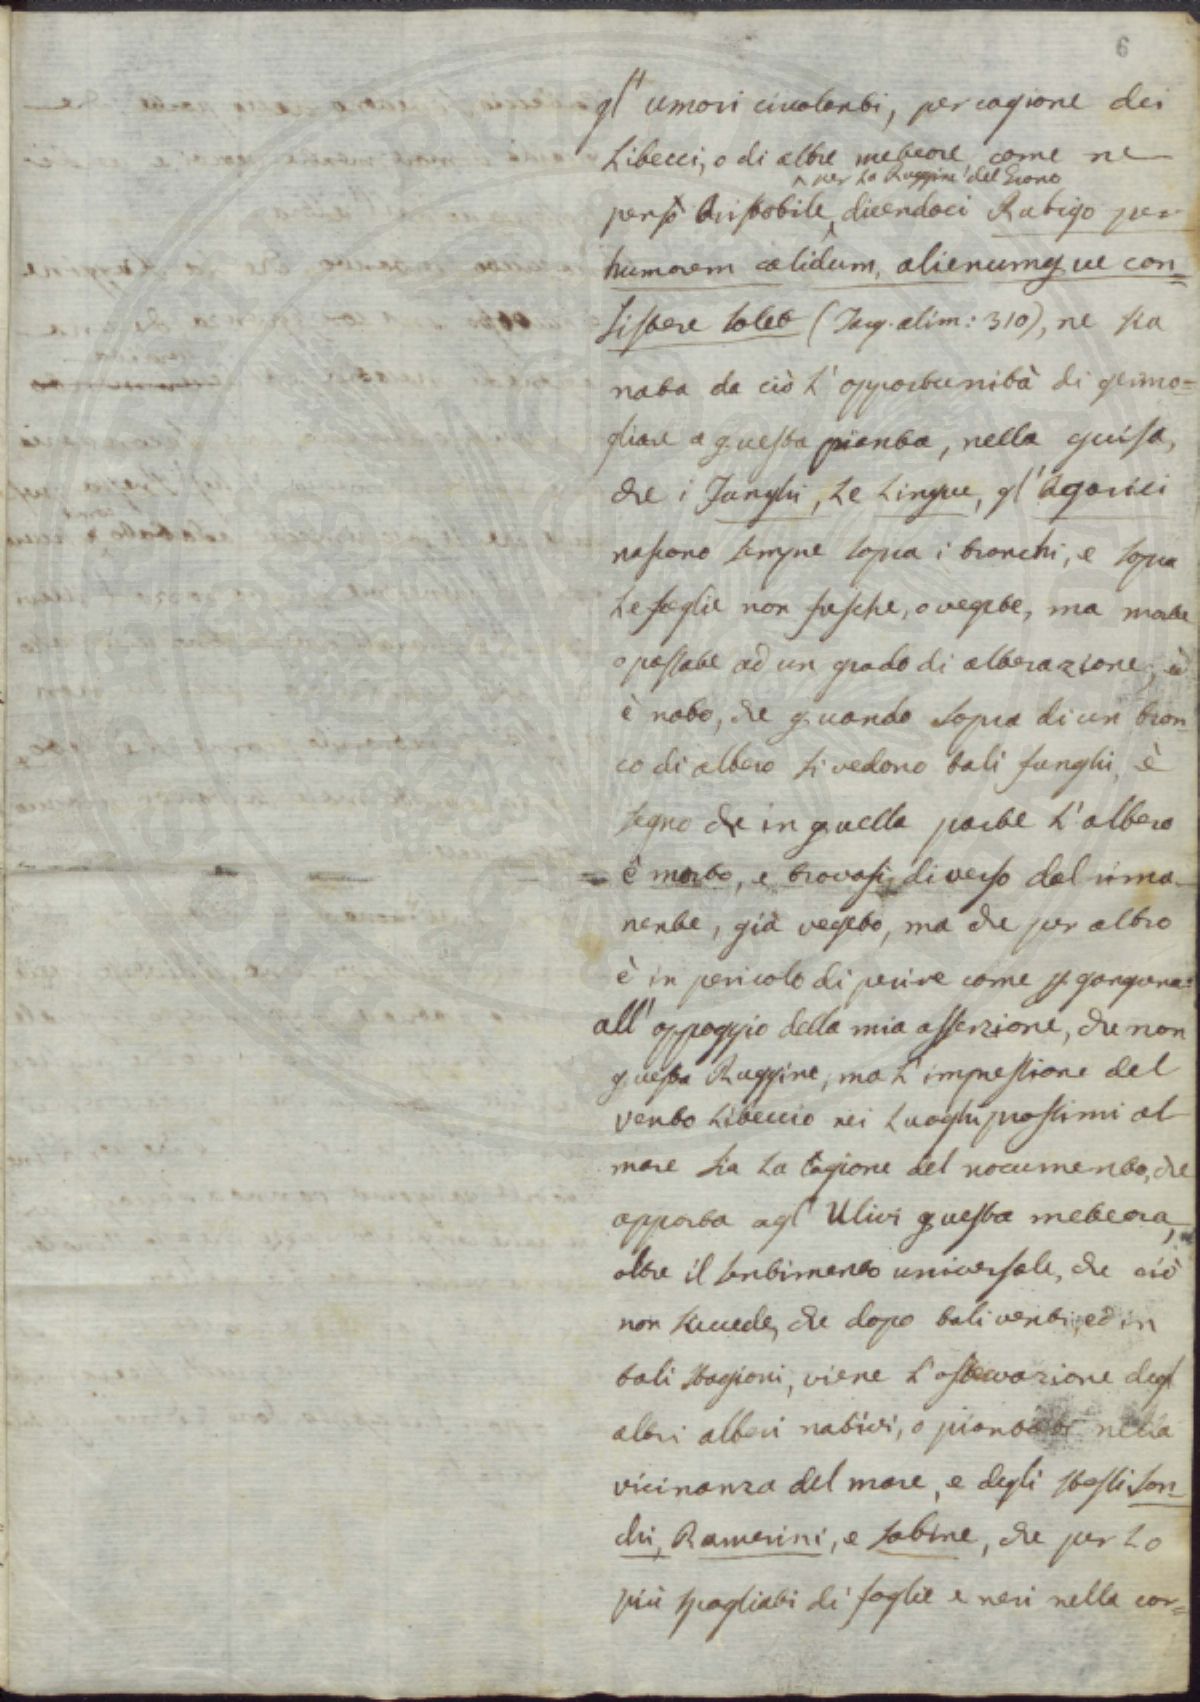 6
gl' umori circolanti, per cagione dei
Libecci, o di altre meteore, come ne
per la Ruggine del Grano
pensò Aristotile, dicendoci Rubigo per
humorem calidum, alienumque con=
sistere solet (Jag. alim: 310), ne sia
nata da ciò l'opportunità di germo=
gliare a questa pianta, nella guisa,
che i Funghi, Le Lingue, gl'Agarici
nascono sempre sopra i tronchi, e sopra
Le foglie non fresche, o vegete, ma morte
o passate ad un grado di alterazione; ed
è noto, che quando sopra di un tron
co di albero si vedono tali funghi, è
segno che in quella parte L'albero
è morto, e trovasi diverso dal rima=
nente, già vegeto, ma che per altro
è in pericolo di perire come p gangrena:
all'appoggio della mia asserzione, che non
questa Ruggine, ma L'impressione del
vento Libeccio nei Luoghi prossimi al
mare sia La Cagione del nocumento, che
apporta agl'Ulivi questa meteora,
oltre il sentimento universale, che ciò
non succede, che dopo tali venti, ed in
tali stagioni, viene L'osservazione degl
altri alberi nativi, o piantati nella
vicinanza del mare, e degli stessi Son=
chi, Ramerini, e Sabine, che per Lo
più spogliati di foglie e neri nella cor=